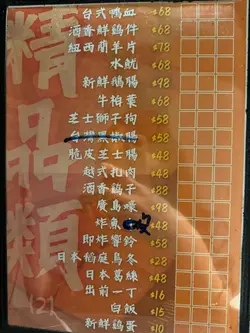 精品類
台式鴨血 $68
酒香鮮鷄件 $68
紐西蘭羊片 $78
水魷 $68
新鮮鵝腸 $98
牛柏葉 $68
芝士獅子狗 $58
台灣黑椒腸 $58
脆皮芝士腸 $48
越式扎肉 $48
酒香鷄子 $88
廣島蠔 $98
炸魚 $48
即炸響鈴 $58
日本稻庭烏冬 $28
日本葛絲 $48
出前一丁 $16
白飯 $15
新鮮鷄蛋 $10
121